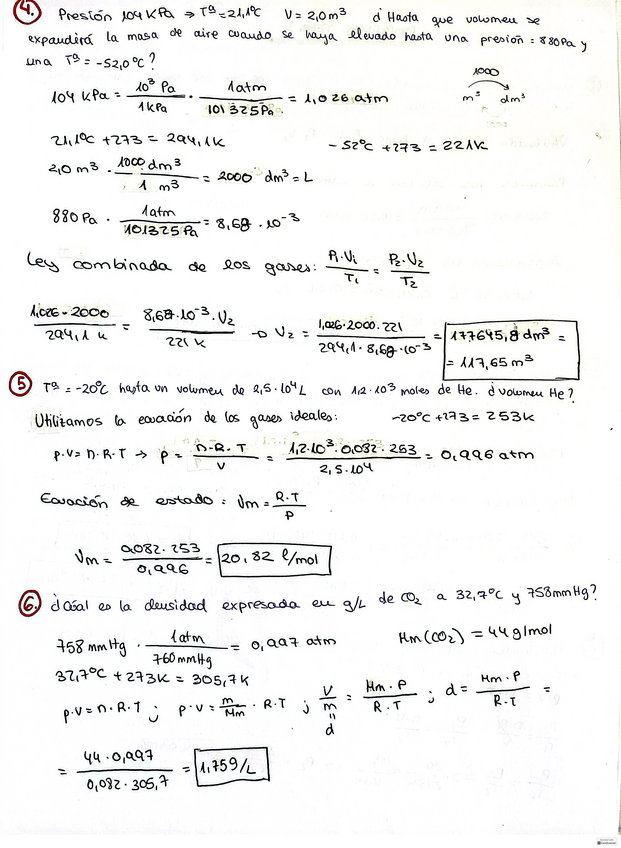 4. Presión 104 kPa → Tª = 21,1ºC V = 2,0 m³ ¿Hasta que volumen se
expandirá la masa de aire cuando se haya elevado hasta una presión = 880Pa y
una Tª = -52,0ºC?
104 kPa = 10³ Pa / 1 kPa · 1atm / 101325Pa = 1,026 atm
1000
m³ dm³
21,1ºC + 273 = 294,1K - 52ºC + 273 = 221K
2,0 m³ · 1000 dm³ / 1 m³ = 2000 dm³ = L
880 Pa · 1atm / 101325 Pa = 8,68 · 10⁻³
Ley combinada de los gases: P₁·V₁ / T₁ = P₂·V₂ / T₂
1,026·2000 / 294,1 K = 8,68·10⁻³·V₂ / 221 K → V₂ = 1,026·2000·221 / 294,1·8,68·10⁻³ = 177645,8 dm³ =
= 117,65 m³
5 Tª = -20ºC hasta un volumen de 2,5·10⁴ L con 1,2·10³ moles de He. ¿volumen He?
Utilizamos la ecuación de los gases ideales: -20ºC + 273 = 253K
p·V = n·R·T → p = n·R·T / V = 1,2·10³·0,082·253 / 2,5·10⁴ = 0,996 atm
Ecuación de estado: Vm = R·T / P
Vm = 0,082·253 / 0,996 = 20,82 l/mol
6. ¿Cuál es la densidad expresada en g/L de CO₂ a 32,7ºC y 758mmHg?
758 mmHg · 1atm / 760mmHg = 0,997 atm Mm (CO₂) = 44 g/mol
32,7ºC + 273K = 305,7K
p·V = n·R·T ; p·V = m / Mm · R·T ; V / m = Mm·P / R·T ; d = Mm·P / R·T =
=
d
= 44·0,997 / 0,082·305,7 = 1,759/L